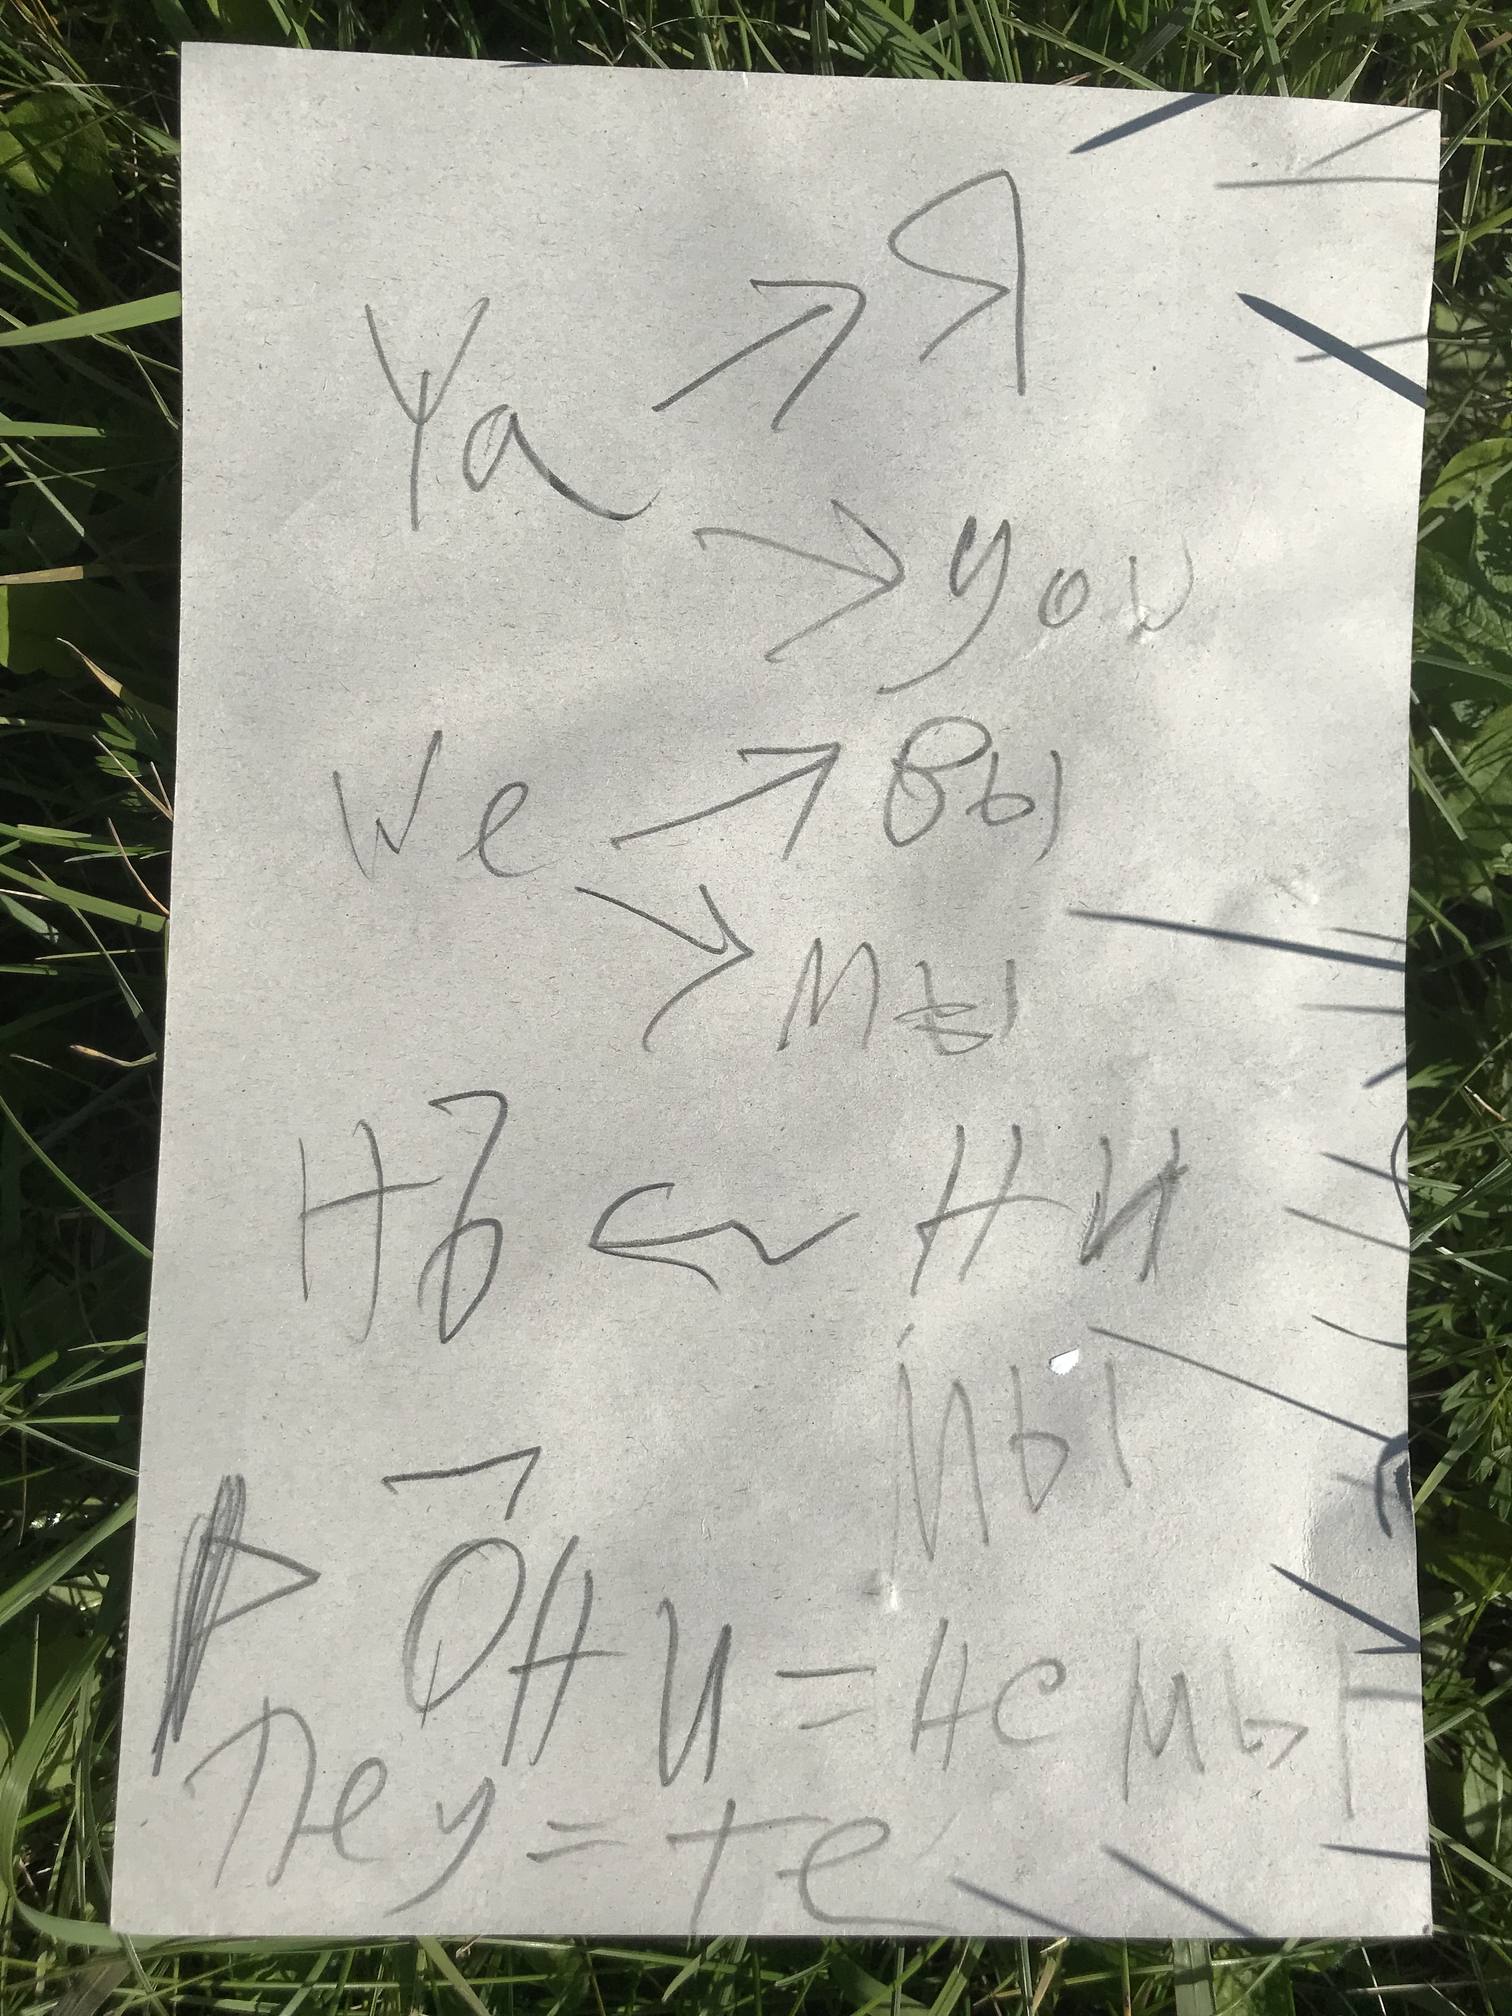 Ya → Я
→ you
We → Вы
→ Мы
← НИ
Мы
ОНИ = НЕ МЫ
They = те